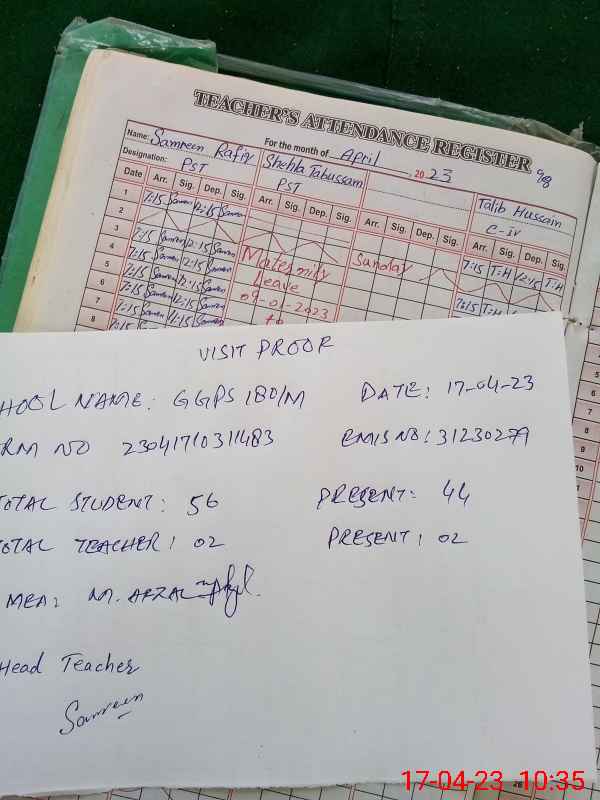 TEACHER'S ATTENDANCE REGISTER
Name: Samreen Rafiq For the month of April, 2023
Designation: PST Shehla Tabussam PST Talib Hussain C-iv
Date Arr. Sig. Dep. Sig. Arr. Sig. Dep. Sig. Arr. Sig. Dep. Sig. Arr. Sig. Dep. Sig.
1 7:15 Samreen 12:15 Samreen 7:15 T:H 12:15 T:H
2 Sunday
3 7:15 Samreen 12:15 Samreen 7:15 T:H
4 7:15 Samreen 12:15 Samreen
5 7:15 Samreen 12:15 Samreen
6 7:15 Samreen 12:15 Samreen
7 7:15 Samreen 11:15 Samreen
8 7:15
Maternity
Leave
09-01-2023
to
VISIT PROOF
HOOL NAME: GGPS 180/M DATE: 17-04-23
RM NO 23041710311483 EMIS NO: 31230279
TOTAL STUDENT: 56 PRESENT: 44
TOTAL TEACHER: 02 PRESENT: 02
MEA: M. AFZAL
Head Teacher
Samreen
17-04-23 10:35